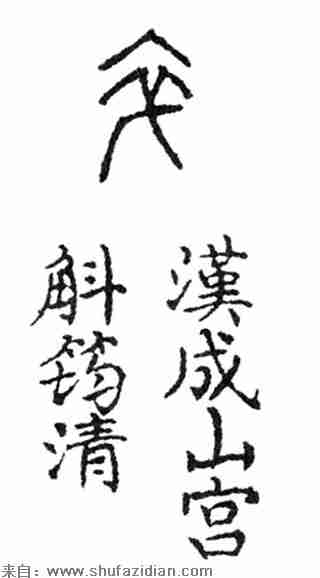 漢成山宫
斛筠清
来自：www.shufazidian.com